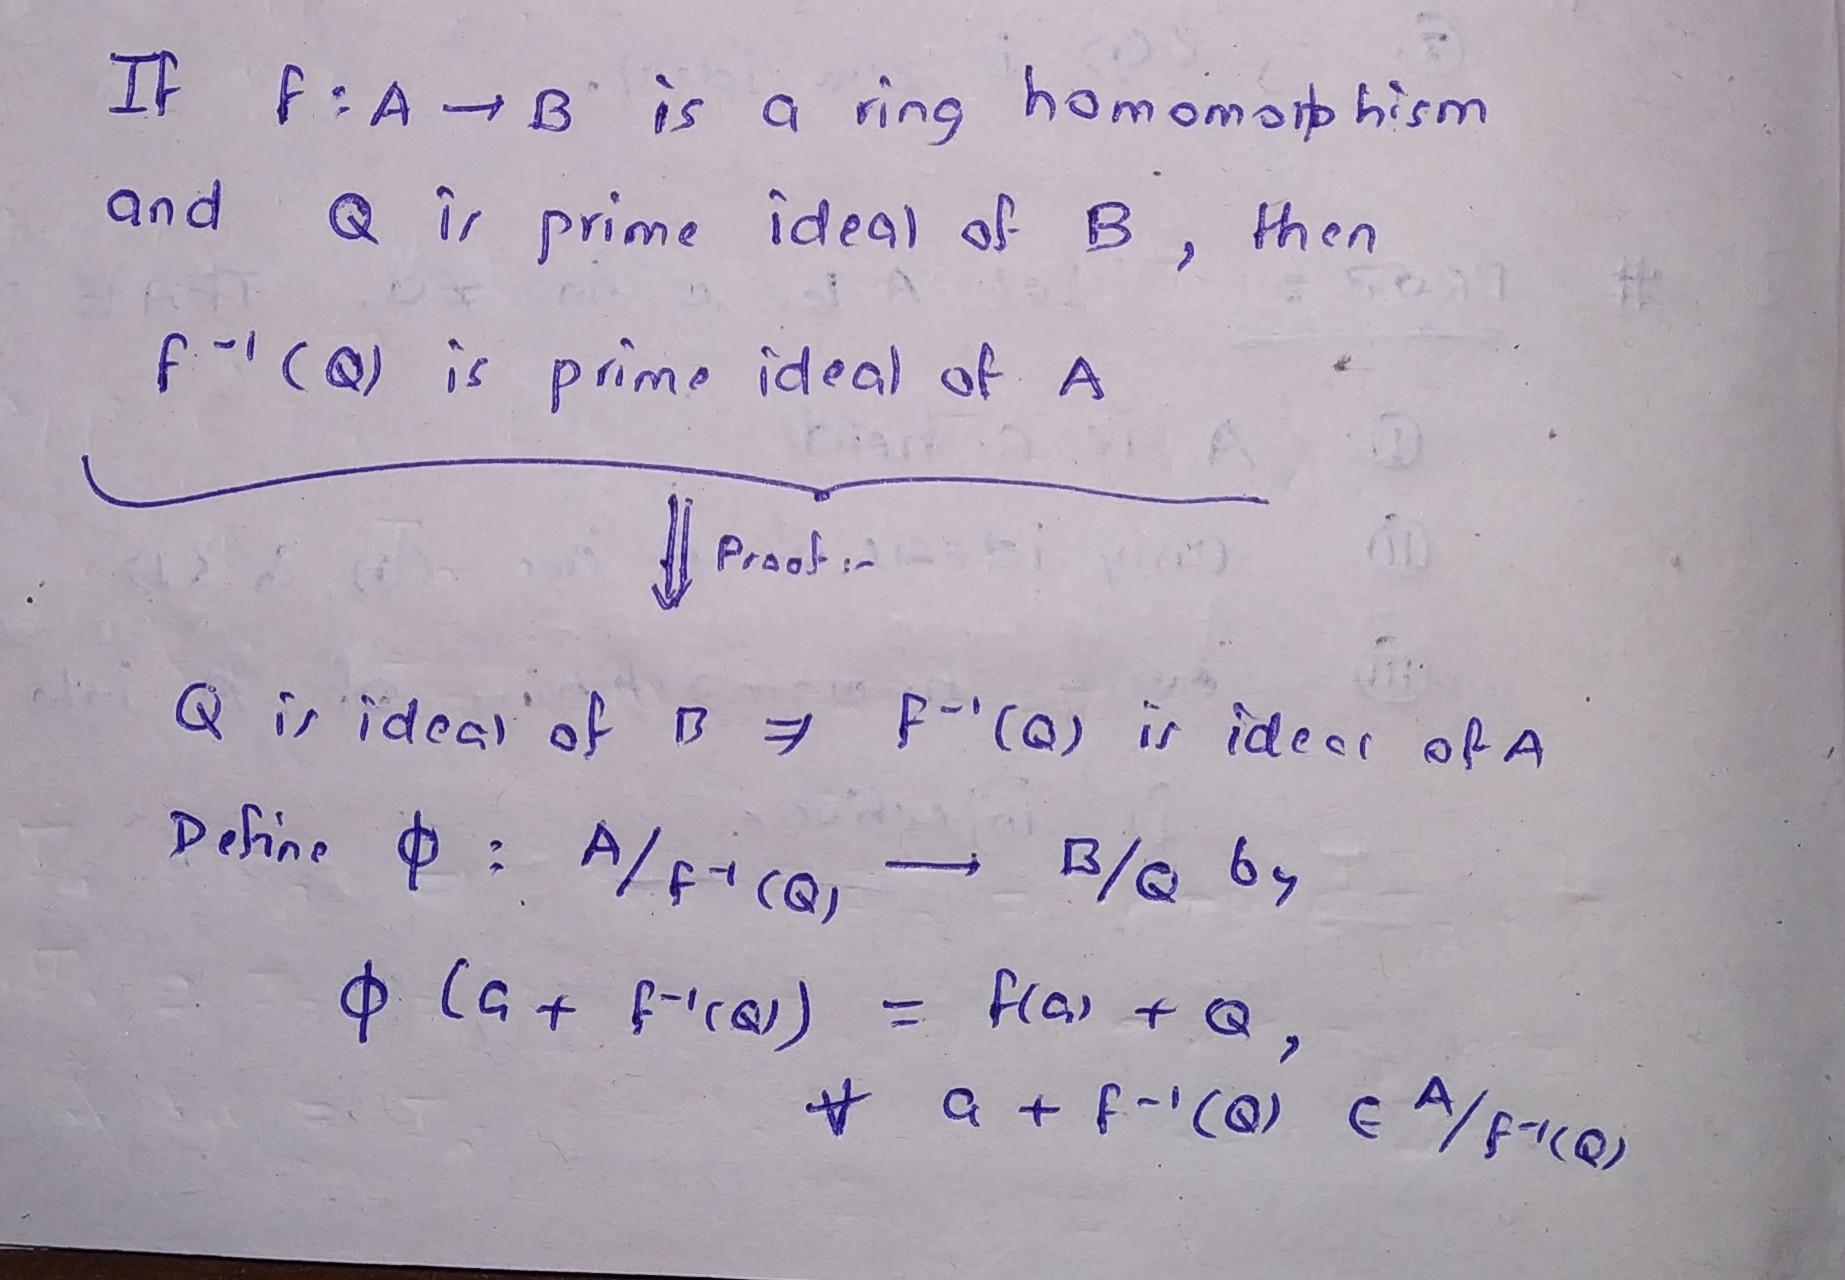 If f : A → B is a ring homomorphism
and Q is prime ideal of B , then
f⁻¹(Q) is prime ideal of A
⇓ Proof :-
Q is ideal of B ⇒ f⁻¹(Q) is ideal of A
Define ϕ : A/f⁻¹(Q) → B/Q by
ϕ (a + f⁻¹(Q)) = f(a) + Q ,
∀ a + f⁻¹(Q) ∈ A/f⁻¹(Q)